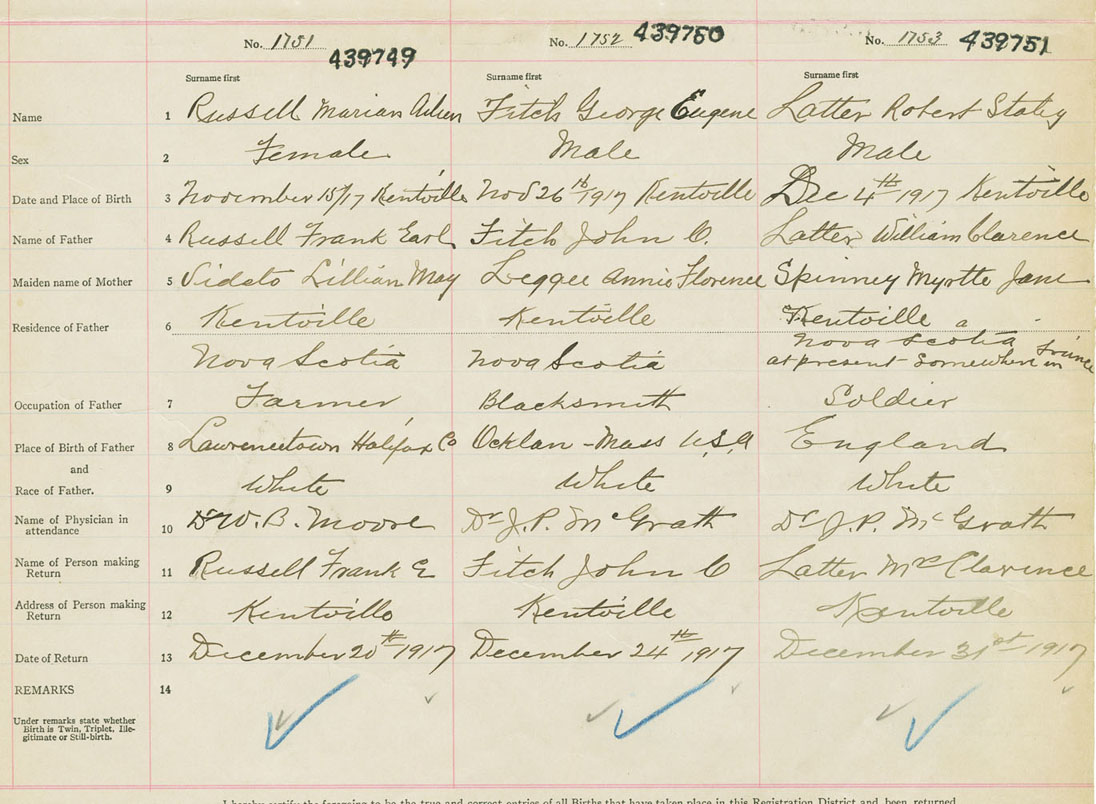 No. 1751 439749 No. 1752 439750 No. 1753 439751
Surname first Surname first Surname first
Name 1 Russell Marian Aileen Fitch George Eugene Latter Robert Staley
Sex 2 Female Male Male
Date and Place of Birth 3 November 15/17 Kentville Nov 26th 1917 Kentville Dec 4th 1917 Kentville
Name of Father 4 Russell Frank Earl Fitch John C. Latter William Clarence
Maiden name of Mother 5 Vidato Lillian May Annie Florence Spinney Myrtle Jane
Residence of Father 6 Kentville Kentville Kentville
Nova Scotia Nova Scotia Nova Scotia
at present somewhere in France
Occupation of Father 7 Farmer Blacksmith Soldier
Place of Birth of Father 8 Lawrencetown Halifax Co - Mass U.S.A England
and
Race of Father. 9 White White White
Name of Physician in
attendance 10 Dr W. B. Moore Dr J. P. McGrath Dr J. P. McGrath
Name of Person making
Return 11 Russell Frank E Fitch John C Latter Mrs Clarence
Address of Person making
Return 12 Kentville Kentville Kentville
Date of Return 13 December 20th 1917 December 24th 1917 December 31st 1917
REMARKS 14
Under remarks state whether
Birth is Twin, Triplet, Ille-
gitimate or Still-birth.
I hereby certify the foregoing to be the true and correct entries of all Births that have taken place in this Registration District and been returned